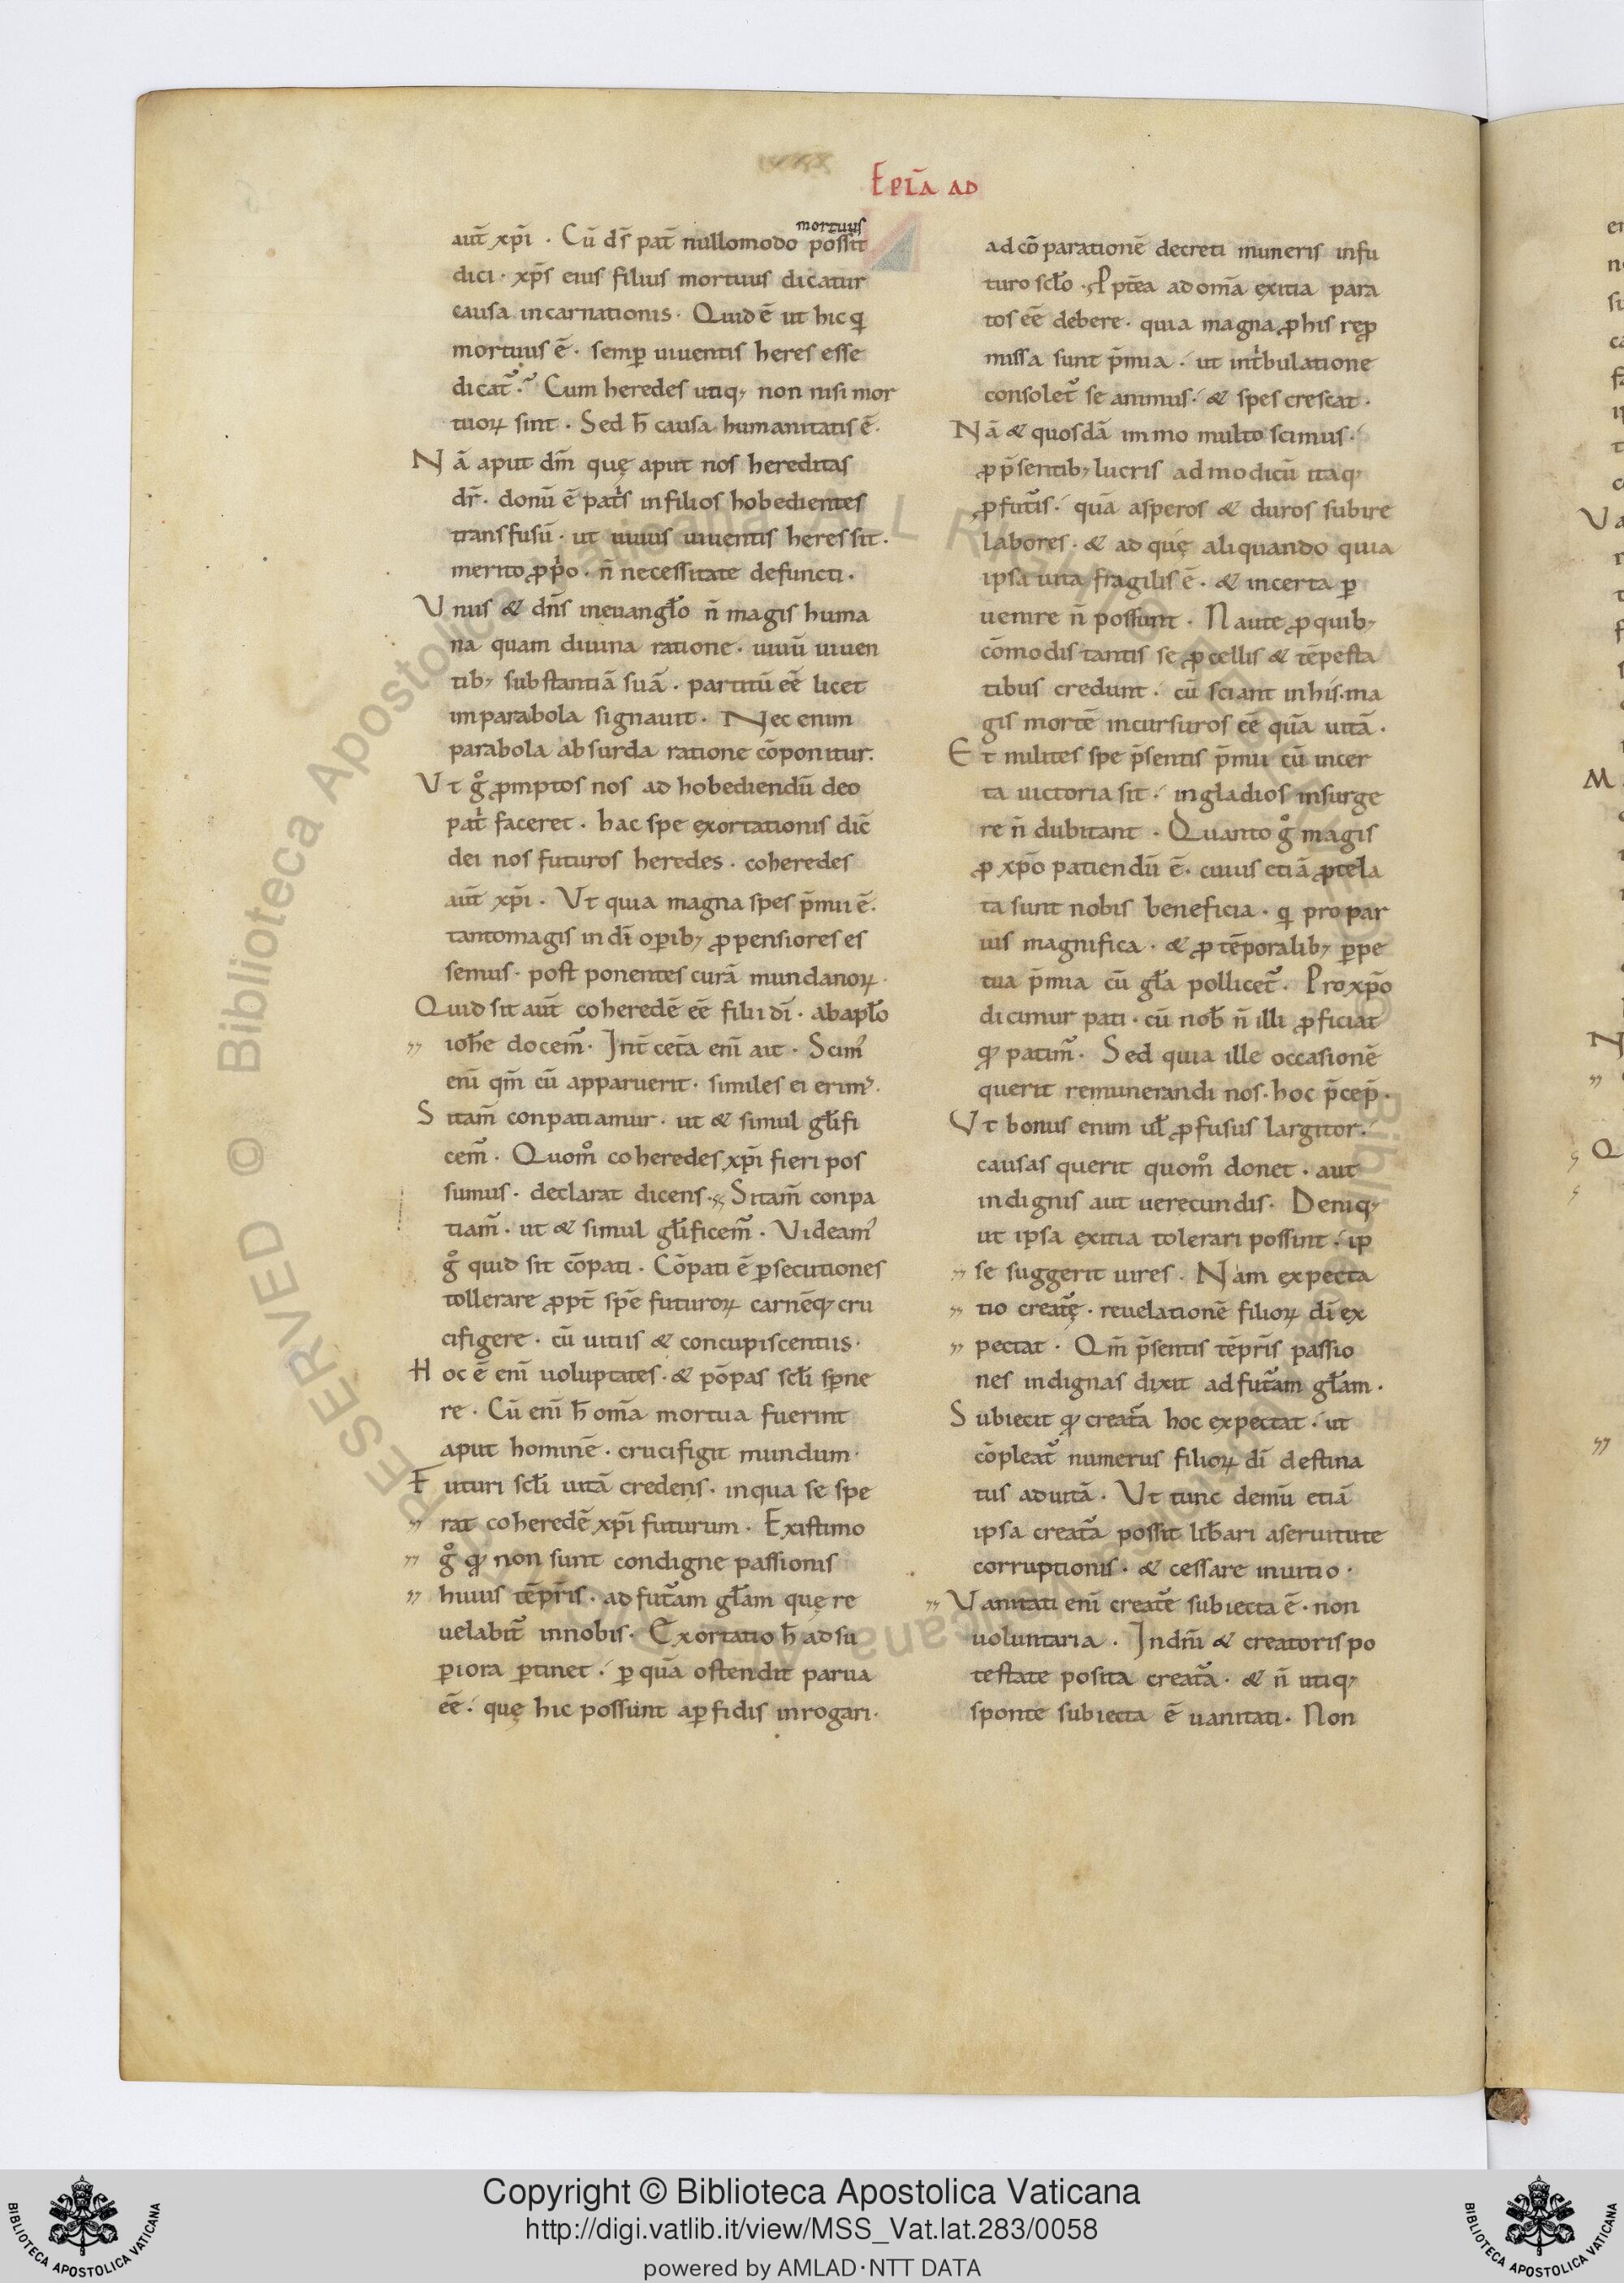 Epła ad
mortuus
aut̄ xp̄i · Cū ds̄ pat̄ nullomodo possit
dici · xp̄s eius filius mortuus dicatur
causa incarnationis · Quid ē ut hic qi
mortuus ē · semꝑ uiuentis heres esse
dicat᷑ · Cum heredes utiq; non nisi mor
tuoꝝ sint · Sed h̄ causa humanitatis ē ·
Nā aput dm̄ quę aput nos hereditas
dr̄ · donū ē patis in filios hobedientes
transfusū · ut uiuus uiuentis heres sit ·
merito ꝓpio · n̄ necessitate defuncti ·
Vnus & dn̄s in euangło n̄ magis huma
na quam diuina ratione · uiuū uiuen
tib; substantiā suā · partitū eē licet
in parabola signauit · Nec enim
parabola absurda ratione cōponitur ·
Vt g° ꝓmptos nos ad hobediendū deo
pati faceret · hac spe exortationis dic̄
dei nos futuros heredes · coheredes
aut̄ xp̄i · Vt quia magna spes p̄mii ē ·
tantomagis in dī oꝑib; ꝓpensiores es
semus · post ponentes curā mundanoꝝ ·
Quid sit aut̄ coheredē eē filii dī · ab apło
ioħe docem᷑ · Int̄ cet̄a eni᷑ ait · Scim᾽
eni᷑ qm̄ cū apparuerit · similes ei erim᾽ ·
Sitam̄ conpatiamur · ut & simul głifi
cem᷑ · Quom° coheredes xp̄i fieri pos
sumus · declarat dicens · Sitam̄ conpa
tiam᷑ · ut & simul głificem᷑ · Videam᾽
g° quid sit cōpati · Cōpati ē ꝑsecutiones
tollerare ꝓpt̄ spē futuroꝝ carnēq; cru
cifigere · cū uitiis & concupiscentiis ·
Hoc ē eni᷑ uoluptates · & pōpas scłi sꝑne
re · Cū eni᷑ h̄ om̄a mortua fuerint
aput hominē · crucifigit mundum ·
Futuri scłi uitā credens · in qua se spe
rat coheredē xp̄i futurum · Existimo
g° qď non sunt condigne passionis
huius tēpris · ad fut᷑am głam quę re
uelabit᷑ in nobis · Exortatio h̄ ad su
ꝑiora ꝑtinet · ꝑ quā ostendit parua
eē · quę hic possunt a ꝑfidis inrogari ·
ad cōparationē decreti muneris in fu
turo scło · Ppt̄ea ad om̄a exitia para
tos eē debere · quia magna ꝓ his reꝓ
missa sunt p̄mia · ut in tibulatione
consolet᷑ se animus · & spes crescat ·
Nā & quosdā immo multo scimus ·
ꝓ p̄sentib; lucris ad modicū itaq;
ꝓfut᷑is · quā asperos & duros subire
labores · & ad quę aliquando quia
ipsa uita fragilis ē · & incerta ꝑ
uenire n̄ possunt · Naute ꝓ quib;
cōmodis tantis se ꝓcellis & tēpesta
tibus credunt · cū sciant in his · ma
gis mortē incursuros eē quā uitā ·
Et milites spe p̄sentis p̄mii cū incer
ta uictoria sit · in gladios insurge
re n̄ dubitant · Quanto g° magis
ꝓ xp̄o patiendū ē · cuius etiā ꝓtela
ta sunt nobis beneficia · qi pro par
uis magnifica · & ꝓ tēporalib; ꝑpe
tua p̄mia cū gła pollicet᷑ · Pro xp̄o
dicimur pati · cū nob̄ n̄ illi ꝓficiat
qď patim᷑ · Sed quia ille occasionē
querit remunerandi nos · hoc p̄cep̄ ·
Vt bonus enim uł ꝓfusus largitor ·
causas querit quom° donet · aut
indignis aut uerecundis · Deniq;
ut ipsa exitia tolerari possint · ip
se suggerit uires · Nam expecta
tio creat᷑ę · reuelationē filioꝝ dī ex
pectat · Qm̄ p̄sentis tēpris passio
nes indignas dixit ad fut᷑am głam ·
Subiecit qď creat᷑a hoc expectat · ut
cōpleat᷑ numerus filioꝝ dī destina
tus ad uitā · Vt tunc demū etiā
ipsa creat᷑a possit lib̄ari a seruitute
corruptionis · & cessare in uitio ·
Vanitati eni᷑ creat᷑e subiecta ē · non
uoluntaria · In dm̄i & creatoris po
testate posita creat᷑a · & n̄ utiq;
sponte subiecta ē uanitati · Non
Copyright © Biblioteca Apostolica Vaticana
http://digi.vatlib.it/view/MSS_Vat.lat.283/0058
powered by AMLAD·NTT DATA